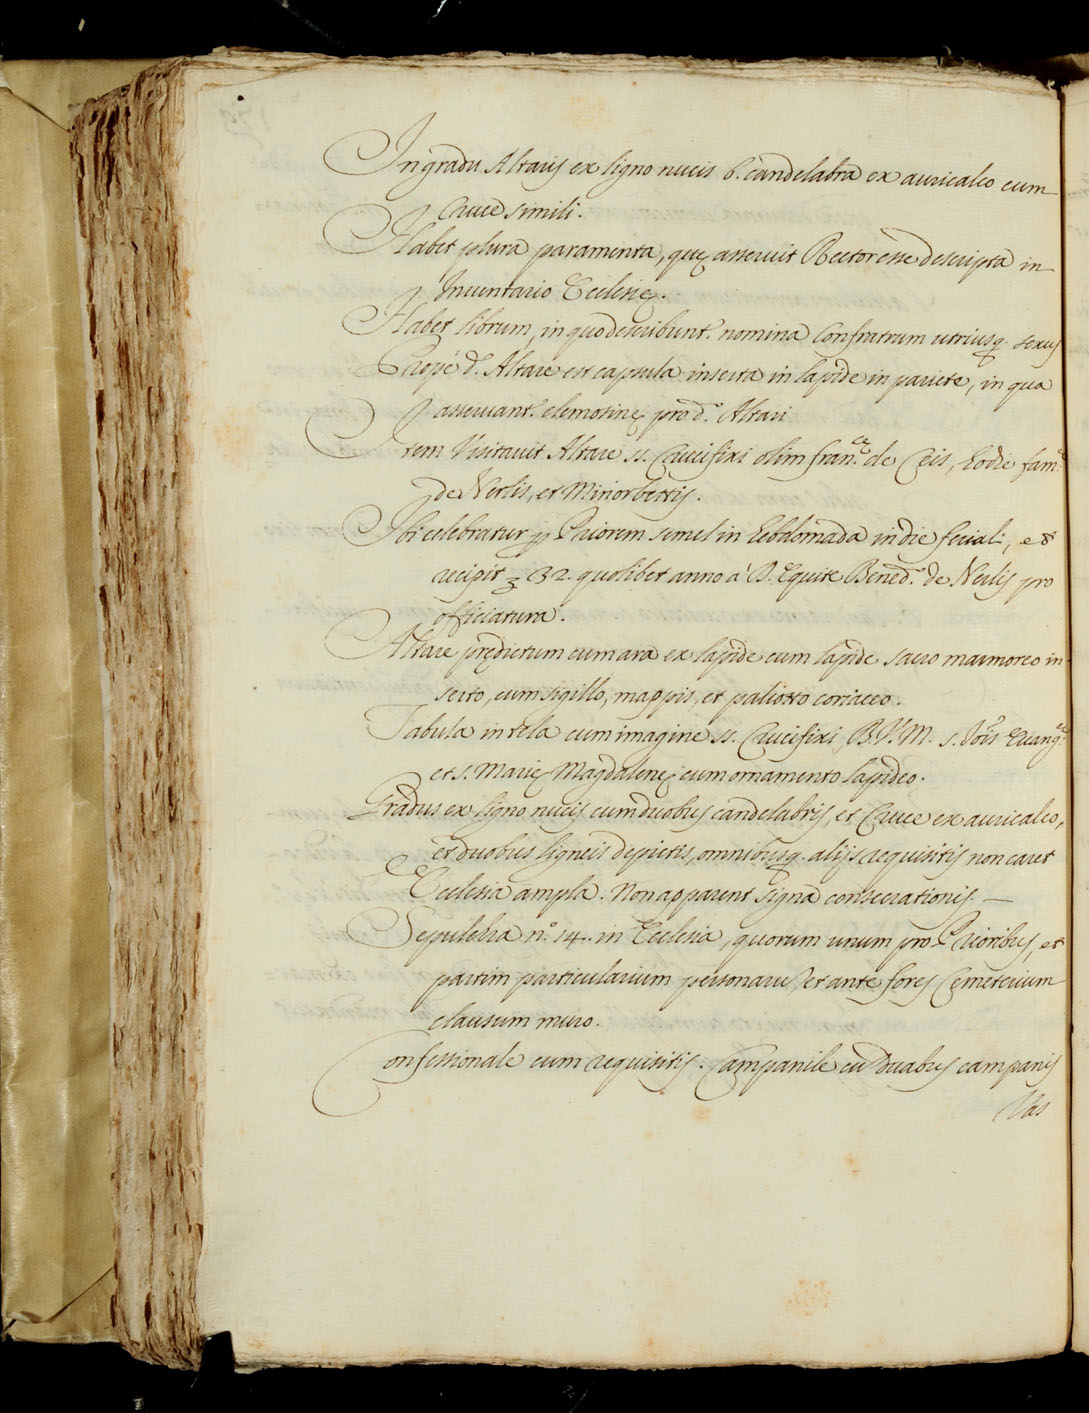 In gradu Altaris ex ligno nucis 6. candelabra ex auricalco cum
Cruce simili.
Habet plura paramenta, quę asseruit Rector esse descripta in
Inventario Ecclesię.
Habet librum, in quo describunt.r nomina Confratrum utriusq. sexus
Propè d.m Altare est capsula inserta in lapide in pariete, in qua
asservant.r elemosinę pro d.o Altari
Item Visitavit Altare ss. Crucifixi olim fran.ce de Ceis, hodie fam.e
de Nerlis, et Minorbettis.
Ibi celebratur p Priorem semel in hebdomada in die feriali, et
recipit 32. quolibet anno à D. Equite Bened.o de Nerlis pro
officiatura.
Altare prędictum cum ara ex lapide cum lapide sacro marmoreo in-
serto, cum sigillo, mappis, et paliotto coriaceo.
Tabula in tela cum imagine ss. Crucifixi, B.V.M. s. Jois Evang.e
et s. Marię Magdalenę cum ornamento lapideo.
Gradus ex ligno nucis cum duobus candelabris, et Cruce ex auricalco,
et duobus ligneis depictis, omnibusq. alijs requisitis non caret
Ecclesia ampla. Non apparent signa consecrationis. —
Sepulchra n.o 14. in Ecclesia, quorum unum pro Prioribus, et
partim particularium personarū, et ante fores Cemeterium
clausum muro.
Confessionale cum requisitis. Campanile cū duabus campanis
Vas